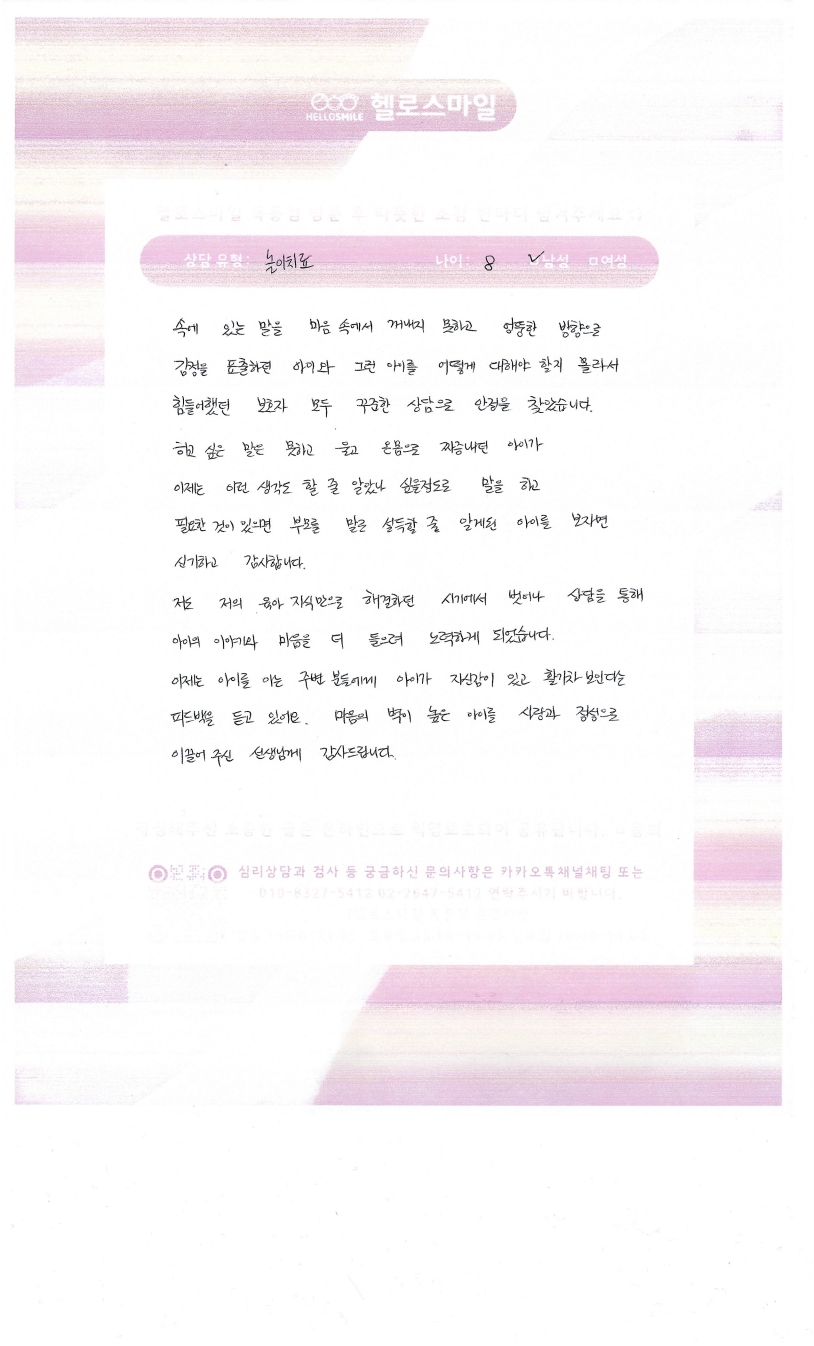 HELLOSMILE 헬로스마일
상담 유형: 놀이치료 나이: 8 ✓남성 □여성
속에 있는 말을 마음 속에서 꺼내지 못하고 엉뚱한 방향으로
감정을 표출하던 아이와 그런 아이를 어떻게 대해야 할지 몰라서
힘들어했던 보호자 모두 꾸준한 상담으로 안정을 찾았습니다.
하고 싶은 말은 못하고 울고 온몸으로 짜증내던 아이가
이제는 이런 생각도 할 줄 알았나 싶을정도로 말을 하고
필요한 것이 있으면 부모를 말로 설득할 줄 알게된 아이를 보자면
신기하고 감사합니다.
저도 저의 육아 지식만으로 해결하던 시기에서 벗어나 상담을 통해
아이의 이야기와 마음을 더 들으려 노력하게 되었습니다.
이제는 아이를 아는 주변 분들에게 아이가 자신감이 있고 활기차 보인다는
피드백을 듣고 있어요. 마음의 벽이 높은 아이를 사랑과 정성으로
이끌어 주신 선생님께 감사드립니다.
심리상담과 검사 등 궁금하신 문의사항은 카카오톡채널채팅 또는
010-8327-5412 02-2647-5412 연락주시기 바랍니다.